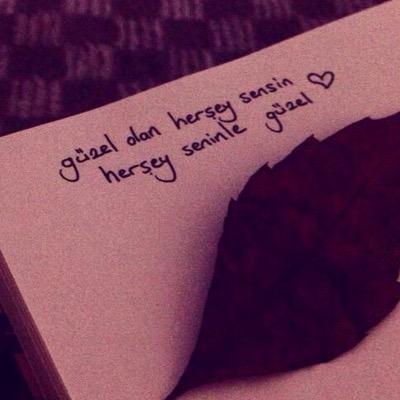 güzel olan herşey sensin ♡
herşey seninle güzel